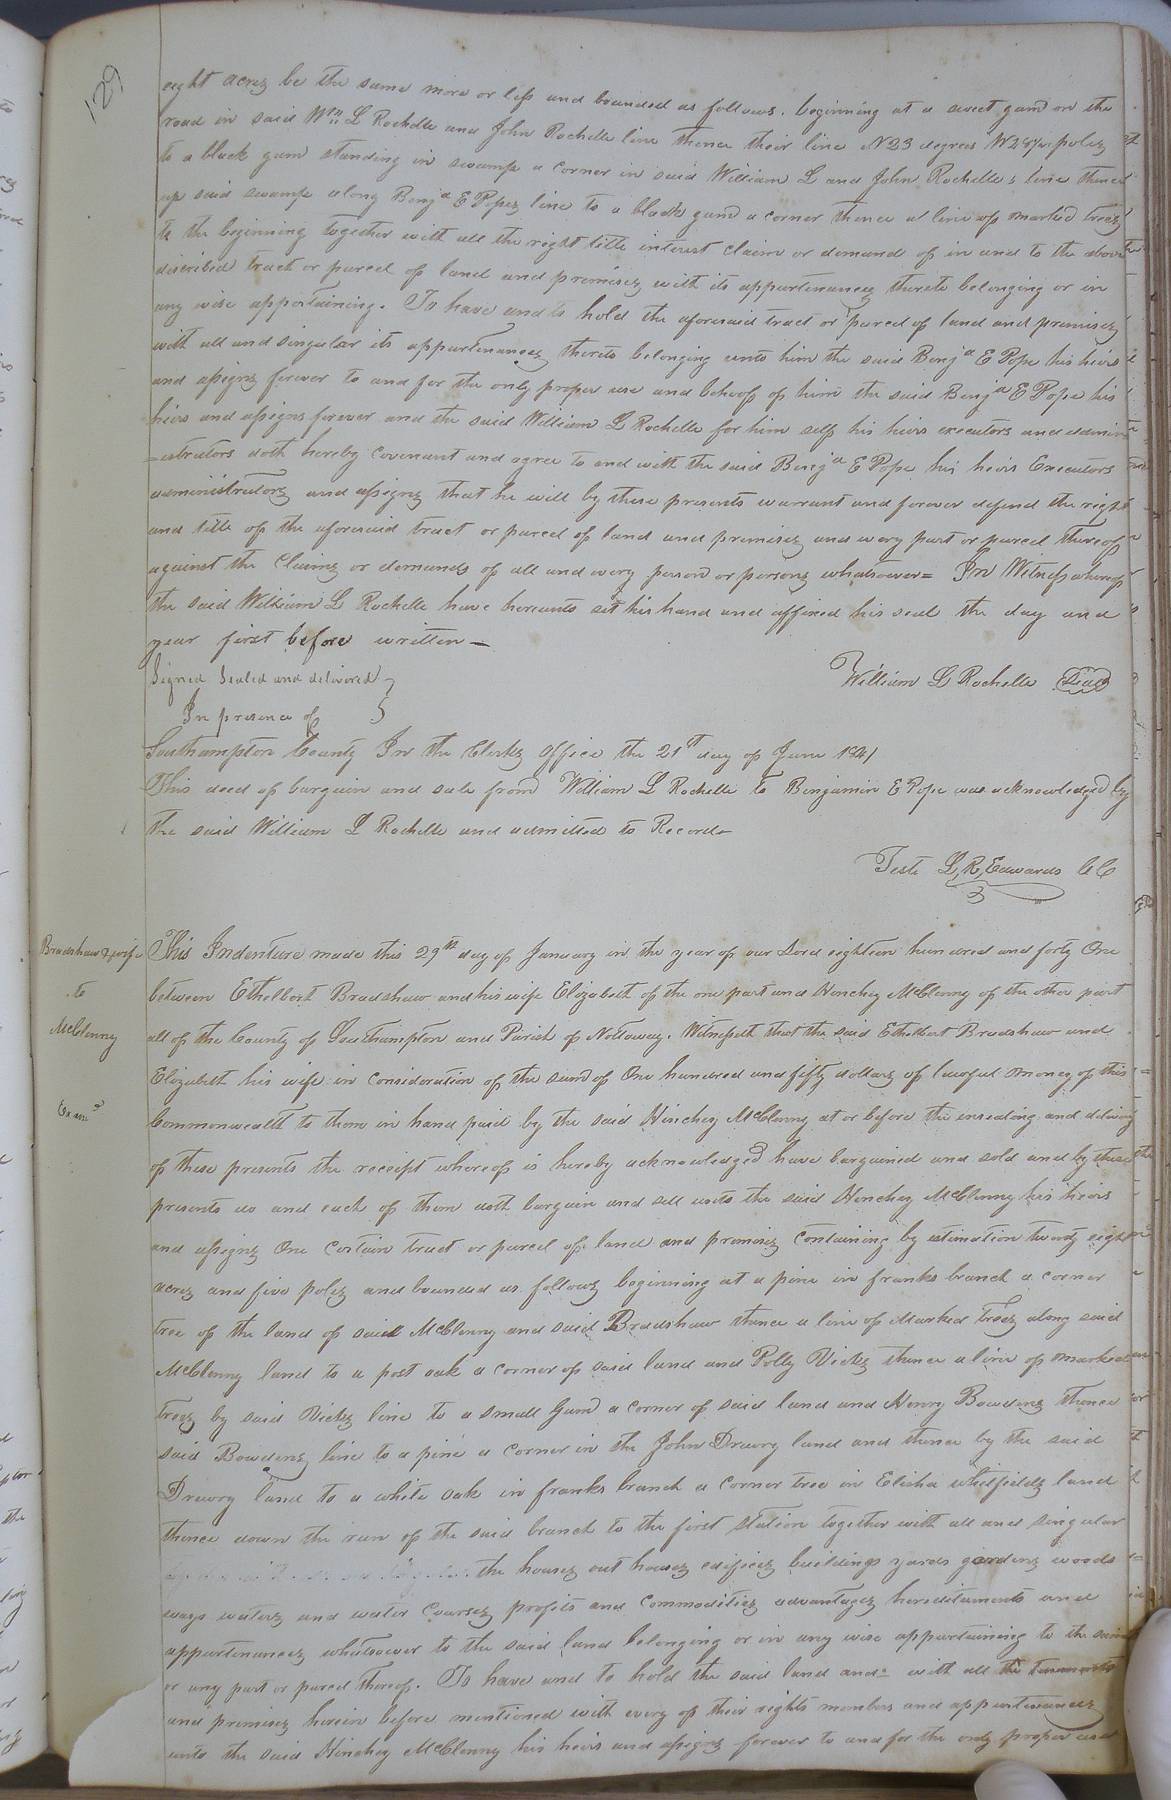 129
eight acres be the same more or less and bounded as follows. beginning at a sweet gum on the
road in said Wm L Rochelle and John Rochelle line thence their line N23 degrees W poles
to a black gum standing in swamp a corner in said William L and John Rochelle's line thence
up said swamp along Benja E Popes line to a black gum a corner thence a line of marked trees
to the beginning together with all the right title interest claim or demand of in and to the above
discribed tract or parcel of land and premises with its appurtenances thereto belonging or in
any wise appertaining. To have and to hold the aforesaid tract or parcel of land and premises
with all and singular its appurtenances thereto belonging unto him the said Benja E Pope his heirs
and assigns forever to and for the only proper use and behoof of him the said Benja E Pope his
heirs and assigns forever and the said William L Rochelle for him self his heirs executors and admin
=istrators doth hereby covenant and agree to and with the said Benja E Pope his heirs Executors
administrators and assigns that he will by these presents warrant and forever defend the right
and title of the aforesaid tract or parcel of land and premises and every part or parcel thereof
against the Claims or demands of all and every person or persons whatsoever= In Witness whereof
the said William L Rochelle have hereunto set his hand and affixed his seal the day and
year first before written—
Signed Sealed and delivered }
William L Rochelle Seal
In presence of
Southampton County In the Clerks Office the 21st day of June 1841
This deed of bargain and sale from William L Rochelle to Benjamin E Pope was acknowledged by
the said William L Rochelle and admitted to Record—
Teste L, R, Edwards CC
Bradshaw & wife
to
McClenny
Examd
This Indenture made this 29th day of January in the year of our Lord eighteen hundred and forty One
between Ethelbert Bradshaw and his wife Elizabeth of the one part and Henchey McClenny of the other part
all of the County of Southampton and Parish of Nottoway. Witnesseth that the said Ethelbert Bradshaw and
Elizabeth his wife in consideration of the sum of One hundred and fifty dollars of lawful money of this
Commonwealth to them in hand paid by the said Hinchey McClenny at or before the ensealing and delivery
of these presents the receipt whereof is hereby acknowledged have bargained and sold and by these
presents do and each of them doth bargain and sell unto the said Henchey McClenny his heirs
and assigns One certain tract or parcel of land and premises containing by estimation twenty eight
acres and five poles and bounded as follows beginning at a pine in franks branch a corner
tree of the land of said McClenny and said Bradshaw thence a line of Marked Trees along said
McClenny land to a post oak a corner of said land and Polly Vicks thence a line of marked
trees by said Vicks line to a small Gum a corner of said land and Henry Bowdens thence
said Bowdens line to a pine a corner in the John Drewry land and thence by the said
Drewry land to a white oak in franks branch a corner tree in Elisha whitfields land
thence down the run of the said branch to the first station together with all and singular
the houses out houses edifices buildings yards gardens woods
ways waters and water Courses profits and commodities advantages hereditaments and
appurtenances whatsoever to the said land belonging or in any wise appertaining to the same
or any part or parcel thereof. To have and to hold the said land and= with all the tenaments
and premises herein before mentioned with every of their rights members and appurtenances
unto the said Hinchey McClenny his heirs and assigns forever to and for the only proper use